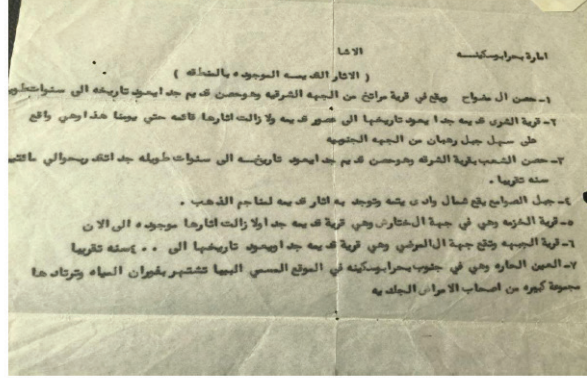 امارة بحرابوسكينه الاشا
( الاثار القديمه الموجوده بالمنطقه )
١- حصن ال مضواح ويقع في قرية مراتخ من الجهه الشرقيه وهوحصن قديم جدا يعود تاريخه الى سنوات طويله
٢- قرية الشرى قديمه جدا يعود تاريخها الى عصور قديمه ولا زالت اثارها قائمه حتي يومنا هذا وهي واقع
على سهل جبل رهبان من الجهه الجنوبيه
٣- حصن الشعب بقرية الشرقه وهوحصن قديم جدا يعود تاريخسه الى سنوات طويله جدا تقدر بحوالي مائتين
سنه تقريبا .
٤- جبل الصوامع يقع شمال وادى يتمه وتوجد به اثار قديمه لمناجم الذهب .
٥- قرية الخزمه وهي في جهة ال ختارش وهي قرية قديمه جدا ولا زالت اثارها موجوده الى الان
٦- قرية الجبهه وتقع جهة ال العرضي وهي قرية قديمه جدا ويعود تاريخها الى ٤٠٠ سنه تقريبا
٧- العين الحاره وهي في جنوب بحرابوسكينه في الموقع المسمي البيبا تشتهر بفوران المياه وترتادها
مجموعة كبيره من اصحاب الامراض الجلديه